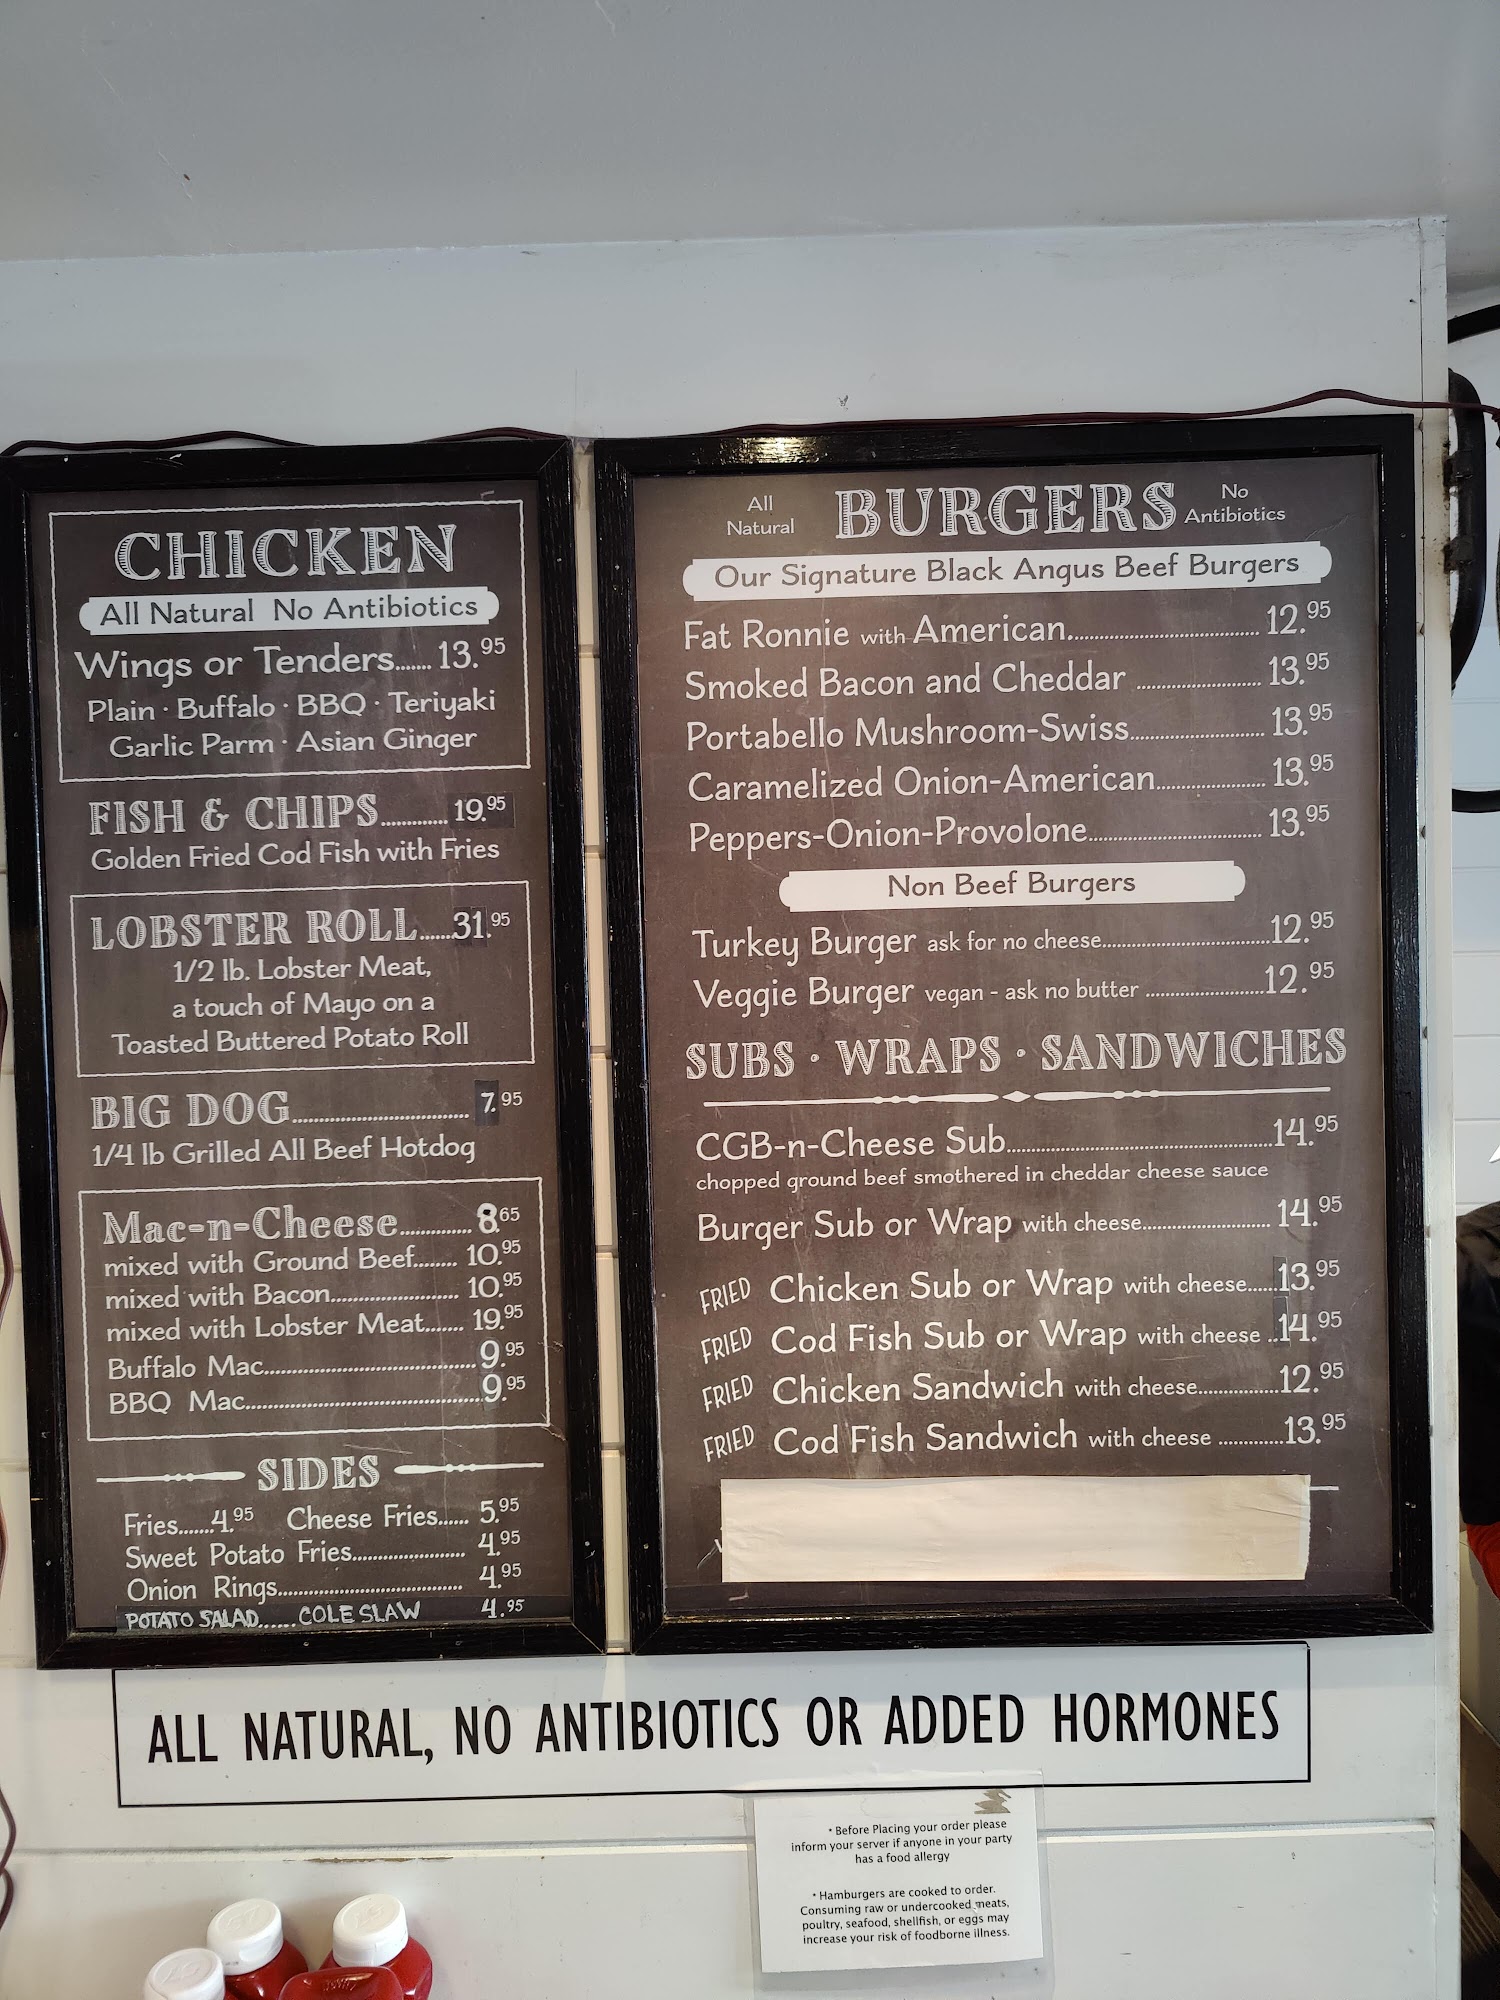 CHICKEN
All Natural No Antibiotics
Wings or Tenders...... 13.95
Plain · Buffalo · BBQ · Teriyaki
Garlic Parm · Asian Ginger
FISH & CHIPS............ 19.95
Golden Fried Cod Fish with Fries
LOBSTER ROLL......31.95
1/2 lb. Lobster Meat,
a touch of Mayo on a
Toasted Buttered Potato Roll
BIG DOG................................ 7.95
1/4 lb Grilled All Beef Hotdog
Mac-n-Cheese............. 8.65
mixed with Ground Beef........ 10.95
mixed with Bacon....................... 10.95
mixed with Lobster Meat....... 19.95
Buffalo Mac......................................9.95
BBQ Mac..........................................9.95
SIDES
Fries.......4.95 Cheese Fries...... 5.95
Sweet Potato Fries.................... 4.95
Onion Rings................................. 4.95
POTATO SALAD...... COLE SLAW 4.95
All Natural BURGERS No Antibiotics
Our Signature Black Angus Beef Burgers
Fat Ronnie with American................................ 12.95
Smoked Bacon and Cheddar ..................... 13.95
Portabello Mushroom-Swiss....................... 13.95
Caramelized Onion-American................... 13.95
Peppers-Onion-Provolone............................. 13.95
Non Beef Burgers
Turkey Burger ask for no cheese.............................12.95
Veggie Burger vegan - ask no butter ....................12.95
SUBS · WRAPS · SANDWICHES
CGB-n-Cheese Sub.............................................14.95
chopped ground beef smothered in cheddar cheese sauce
Burger Sub or Wrap with cheese...................... 14.95
FRIED Chicken Sub or Wrap with cheese......13.95
FRIED Cod Fish Sub or Wrap with cheese ..14.95
FRIED Chicken Sandwich with cheese..............12.95
FRIED Cod Fish Sandwich with cheese ...........13.95
ALL NATURAL, NO ANTIBIOTICS OR ADDED HORMONES
* Before Placing your order please
inform your server if anyone in your party
has a food allergy
* Hamburgers are cooked to order.
Consuming raw or undercooked meats,
poultry, seafood, shellfish, or eggs may
increase your risk of foodborne illness.